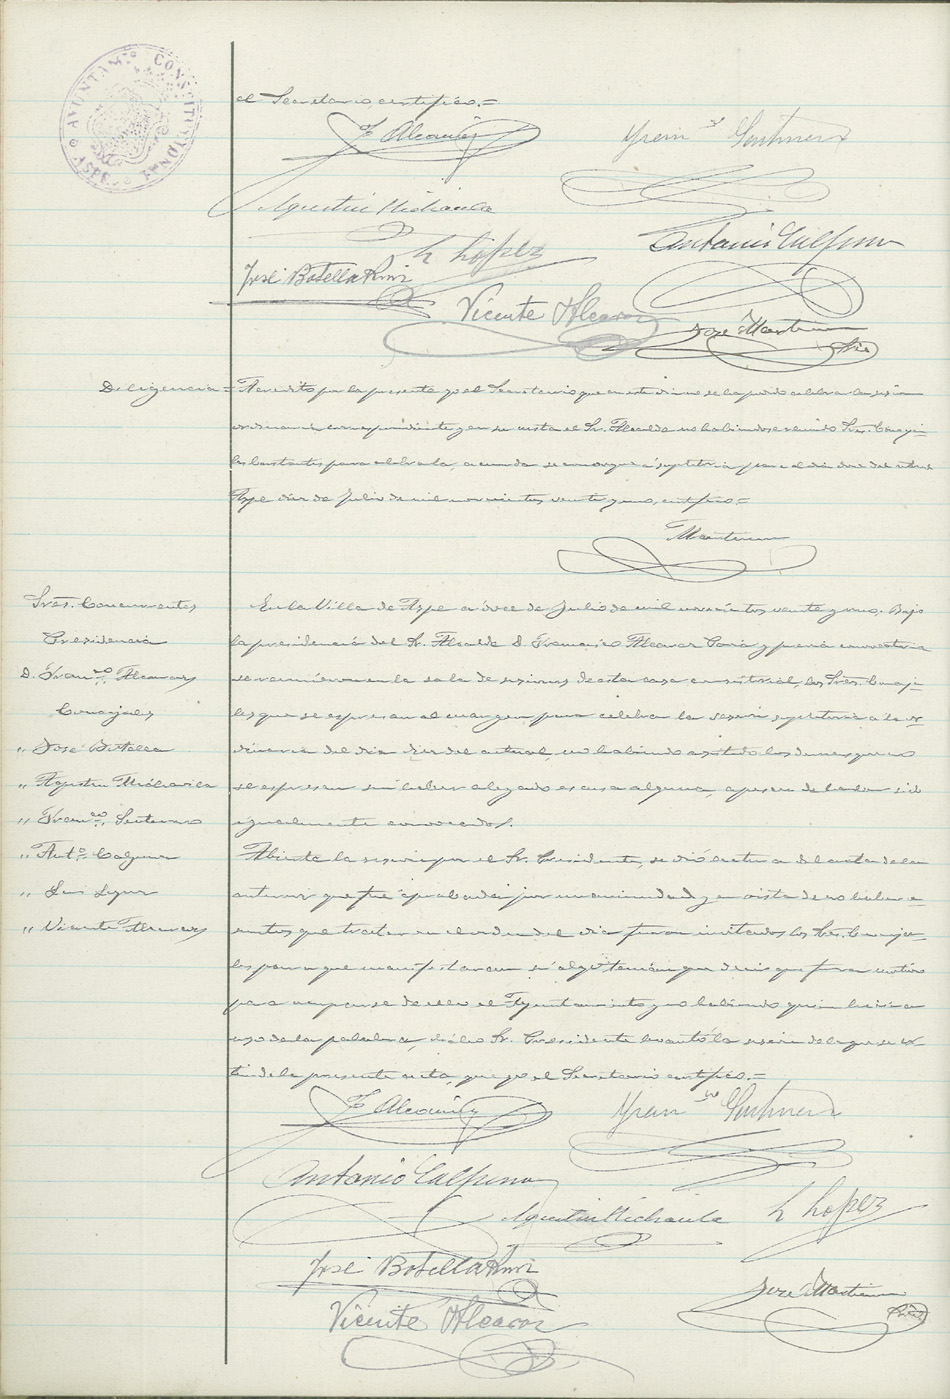 AYUNTAM.to CONSTITUCIONAL
ASPE
el Secretario, certifico.=
F Alcaraz
Fran.co
Agustin Michavila
L López
Antonio Calpena
José Botella
Vicente Alcaraz
José Martinez
Srio
Diligencia = Acredito por la presente yo el Secretario que en este dia no se ha podido celebrar la sesión
ordinaria correspondiente y en su vista el Sr. Alcalde no habiendose reunido Sres. Conceja-
les bastantes para celebrarla, acuerda se convoque a supletoria para el dia doce del actual
Aspe diez de Julio de mil novecientos veinte y uno, certifico.=
Martinez
Sres. Concurrentes
Presidencia
D. Fran.co Alcaraz
Concejales
„ José Botella
„ Agustin Michavila
„ Fran.co
„ Ant.o Calpena
„ Luis Lopez
„ Vicente Alcaraz
En la Villa de Aspe a doce de Julio de mil novecientos veinte y uno. Bajo
la presidencia del Sr. Alcalde D. Francisco Alcaraz y previa convocatoria
se reunieron en la sala de sesiones de esta casa consistorial, los Sres. Conceja-
les que se expresan al margen para celebrar la sesion supletoria a la or-
dinaria del dia diez del actual, no habiendo asistido los demas que no
se expresan sin haber alegado escusa alguna, a pesar de haber sido
igualmente convocados.
Abierta la sesion por el Sr. Presidente, se dió lectura del acta de la
anterior que fué aprobada por unanimidad y en vista de no haber a-
suntos que tratar en el orden del dia fueron invitados los Sres. Conceja-
les para que manifestaran si algo tenian que decir que fuera motivo
para ocuparse de ello el Ayuntamiento y no habiendo quien hiciera
uso de la palabra, dicho Sr. Presidente levantó la sesion de la que se ex-
tiende la presente acta, que yo el Secretario certifico.=
F Alcaraz
Fran.co
Antonio Calpena
Agustin Michavila
L López
José Botella
Vicente Alcaraz
José Martinez
Srio